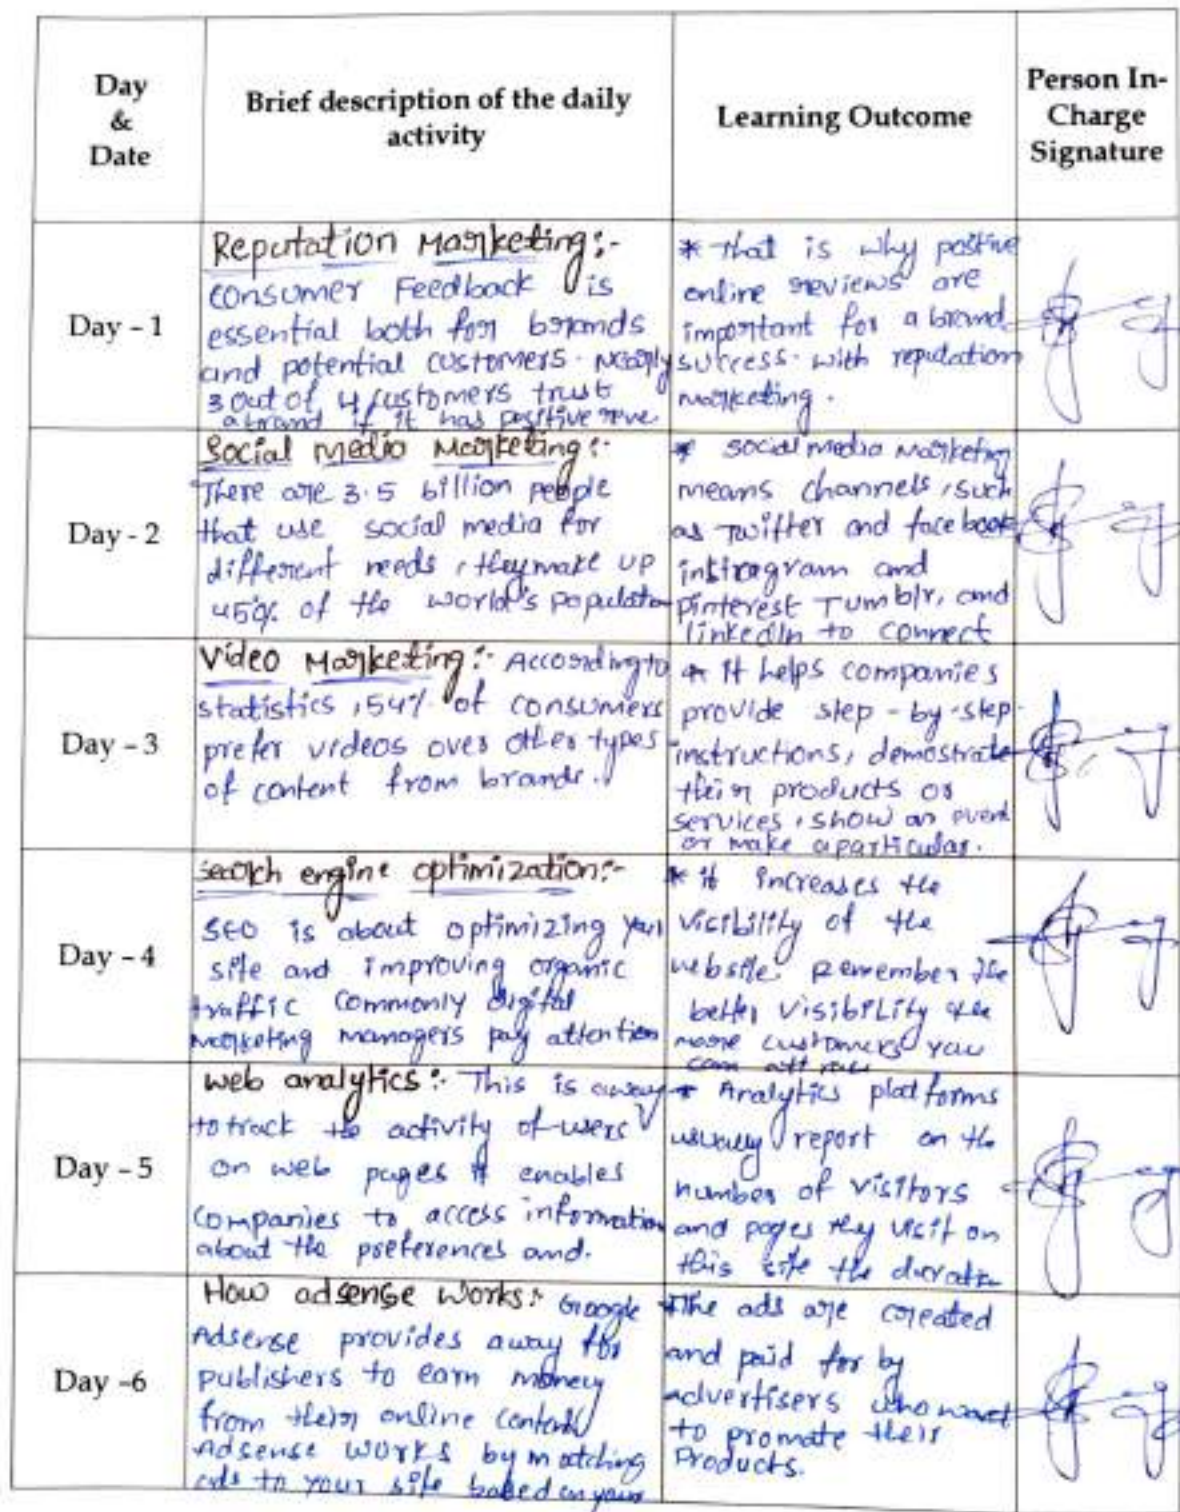 Day
&
Date
Brief description of the daily
activity
Learning Outcome
Person In-
Charge
Signature
Day - 1
Reputation Marketing:-
consumer Feedback is
essential both for brands
and potential customers. Nearly
3 out of 4 customers trust
a brand if it has positive reve
* that is why positive
online reviews are
important for a brand
success. with reputation
marketing.
Day - 2
Social media Marketing:-
There are 3.5 billion people
that use social media for
different needs, they make up
45% of the world's population
* social media marketing
means channels, such
as Twitter and facebook
instragram and
pinterest Tumblr, and
linkedIn to connect
Day - 3
Video Marketing:- According to
statistics, 54% of consumers
prefer videos over other types
of content from brands.
* It helps companies
provide step-by-step
instructions, demostrate
their products or
services, show an event
or make a particular.
Day - 4
Search engine optimization:-
SEO is about optimizing your
site and improving organic
traffic commonly digital
marketing managers pay attention
* it increases the
visibility of the
website. Remember the
better visibility the
more customers you
can
Day - 5
web analytics:- This is a way
to track the activity of users
on web pages it enables
companies to access information
about the preferences and.
* Analytics platforms
usually report on the
number of visitors
and pages they visit on
this site the duration
Day -6
How adsense works:- Google
Adsense provides away for
publishers to earn money
from their online content
Adsense works by matching
ads to your site based on your
*The ads are created
and paid for by
advertisers who want
to promate their
Products.